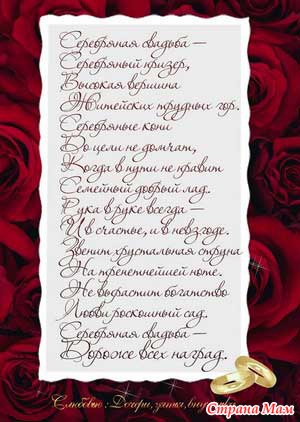 Серебряная свадьба —
Серебряный призер,
Высокая вершина
Житейских трудных гор.
Серебряные кони
До цели не домчат,
Когда в пути не правит
Семейный добрый лад.
Рука в руке всегда —
И в счастье, и в невзгоде.
Звенит хрустальная струна
На трепетнейшей ноте.
Не вырастит богатство
Любви роскошный сад.
Серебряная свадьба —
Дороже всех наград.
С любовью : Дочери, зятья,
Страна Мам